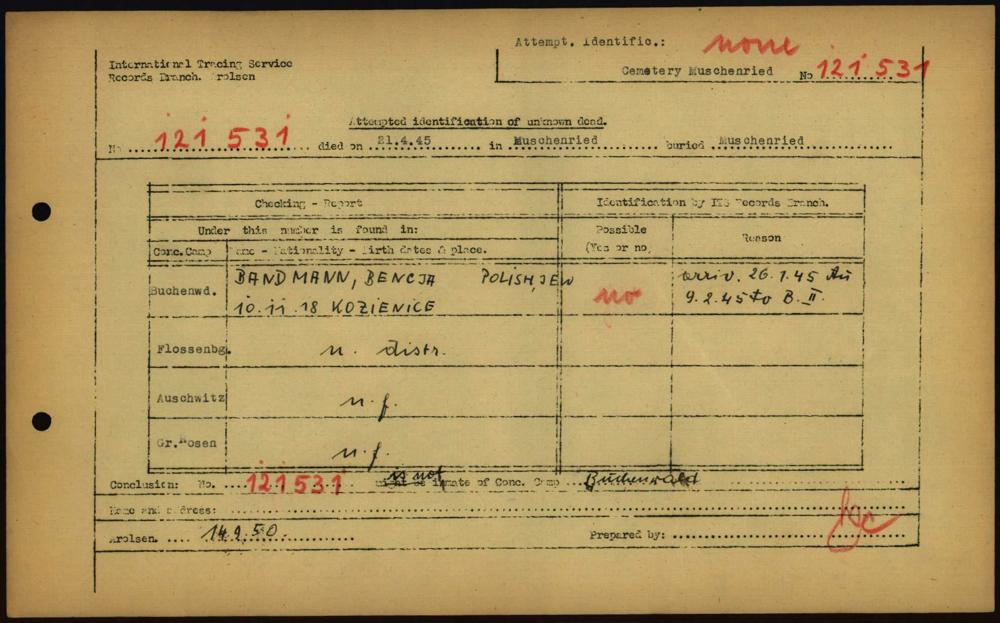 Attempt. Identific.: none
International Tracing Service
Records Branch. Arolsen
Cemetery Muschenried No 121 531
Attempted identification of unknown dead.
No 121 531 died on 21.4.45 in Muschenried buried Muschenried
Checking - Report Identification by ITS Records Branch.
Under this number is found in: Possible (Yes or no) Reason
Conc.Camp Name - Nationality - Birth dates & place.
Buchenwd. BANDMANN, BENCJA POLISH, JEW no arriv. 26.1.45 Au
10.11.18 KOZIENICE 9.2.45 to B. II.
Flossenbg. n. distr.
Auschwitz n.f.
Gr.Rosen n.f.
Conclusion: No. 121531 is not inmate of Conc. Camp Buchenwald
Name and address:
Arolsen. 14.9.50. Prepared by: